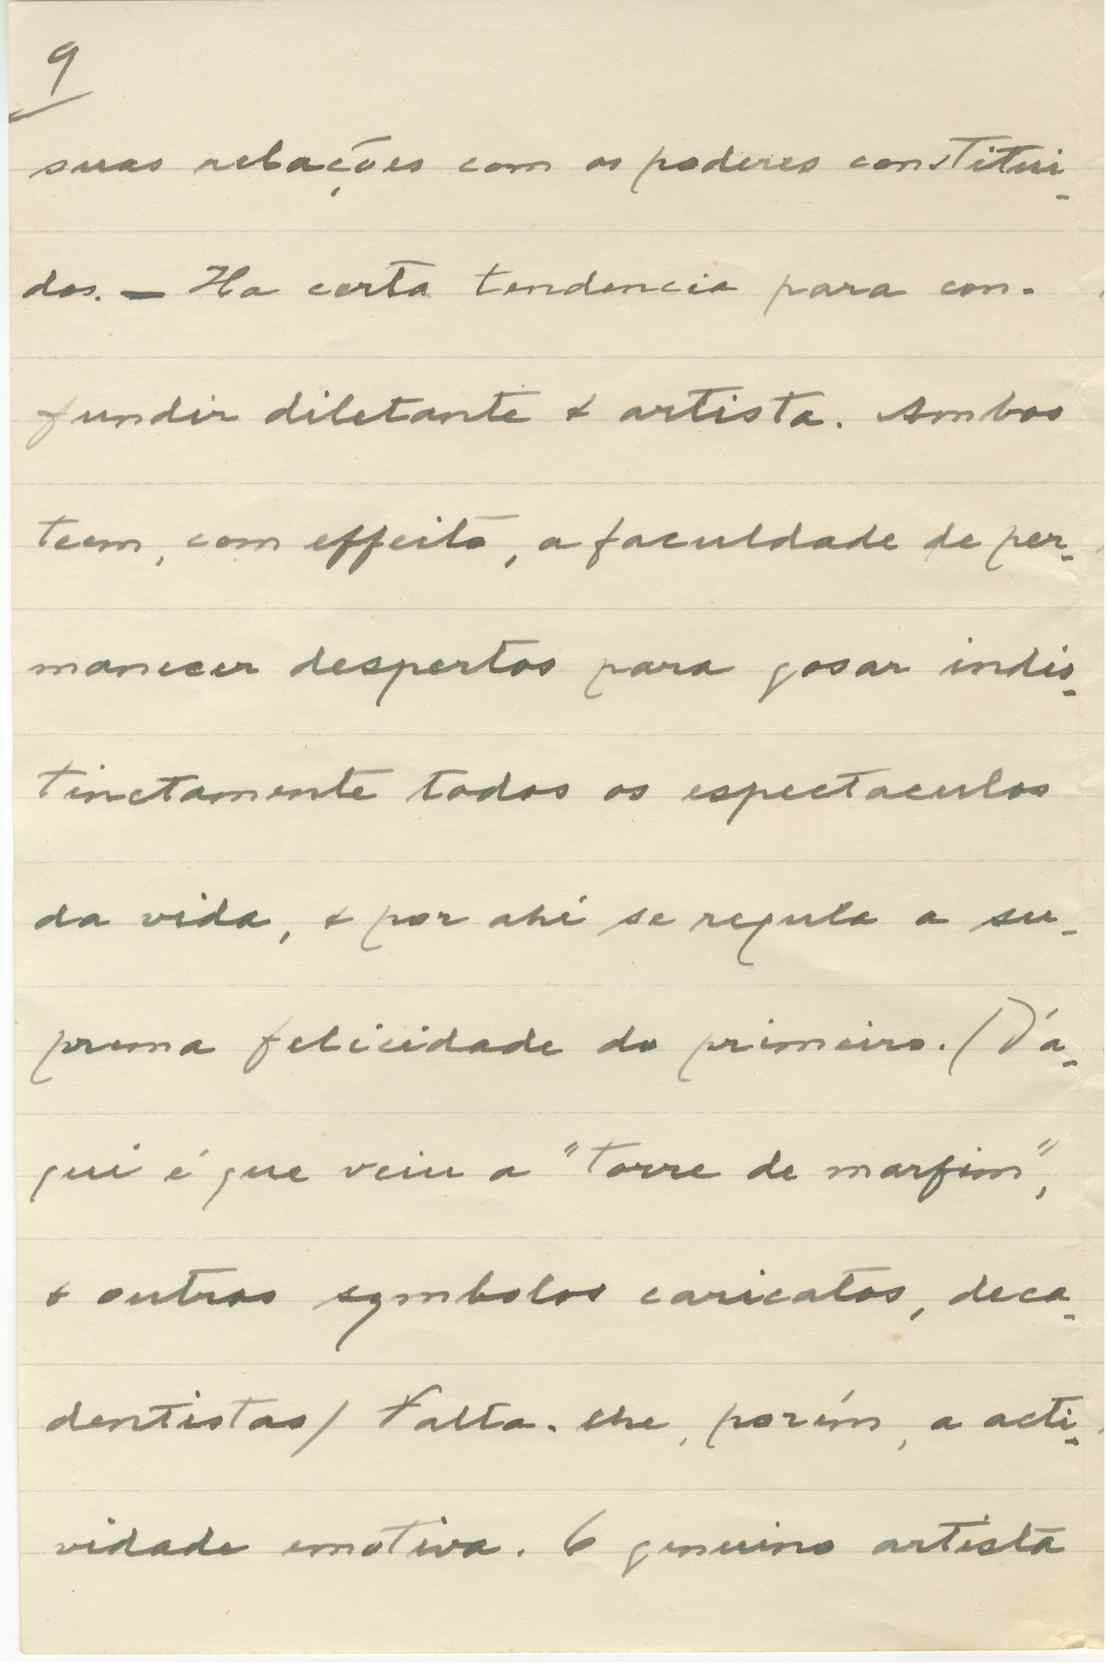 9
suas relações com os poderes constitui-
dos. — Ha certa tendencia para con-
fundir diletante & artista. Ambos
teem, com effeito, a faculdade de per-
manecer despertos para gosar indis-
tinctamente todos os espectaculos
da vida, & por ahi se regula a su-
prema felicidade do primeiro. (D'a-
qui é que veiu a "torre de marfim",
& outros symbolos caricatos, deca-
dentistas) Falta-lhe, porém, a acti-
vidade emotiva. O genuino artista